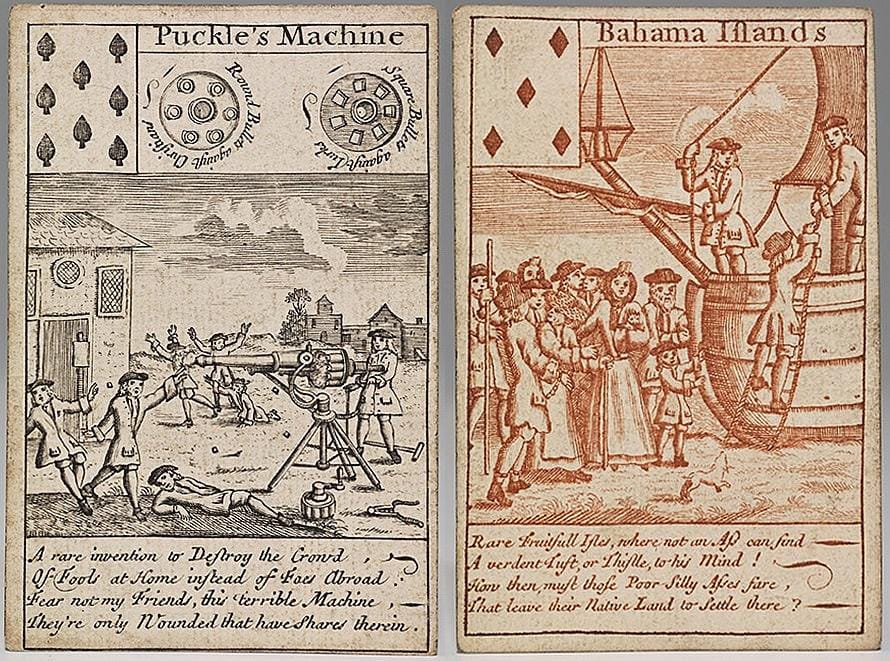 Puckle's Machine
Round Bullets againſt Chriſtians
Square Bullets againſt Turks
A rare invention to Deſtroy the Crowd,
Of Fools at Home inſtead of Foes Abroad:
Fear not my Friends, this terrible Machine,
They're only Wounded that have Shares therein.
Bahama Iſlands
Rare Fruitfull Iſles, where not an Aſs can find
A verdent Tuft, or Thiſtle, to his Mind!
How then, muſt thoſe Poor Silly Aſses fare,
That leave their Native Land to Settle there?